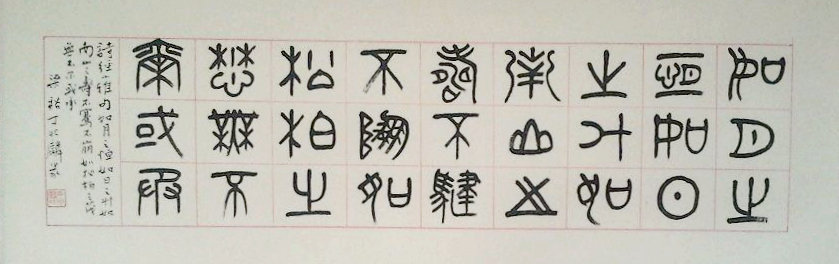 如月之
恒如日
之升如
南山之
壽不騫
不崩如
松柏之
茂無不
爾或承
詩經小雅句如月之恒如日之升如
南山之壽不騫不崩如松柏之茂
無不尔或承